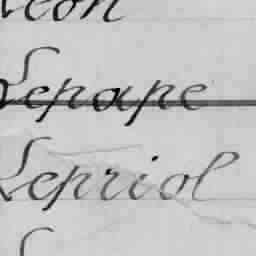 Léon
Lepape
Lepriol